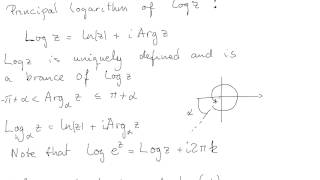 Principal logarithm of Log z :
Log z = ln|z| + i Arg z
Log z is uniquely defined and is
a brance of Log z
-π+α < Arg_α z ≤ π+α
α
Log_α z = ln|z| + i Arg_α z
Note that Log e^z = Log z + i2πk